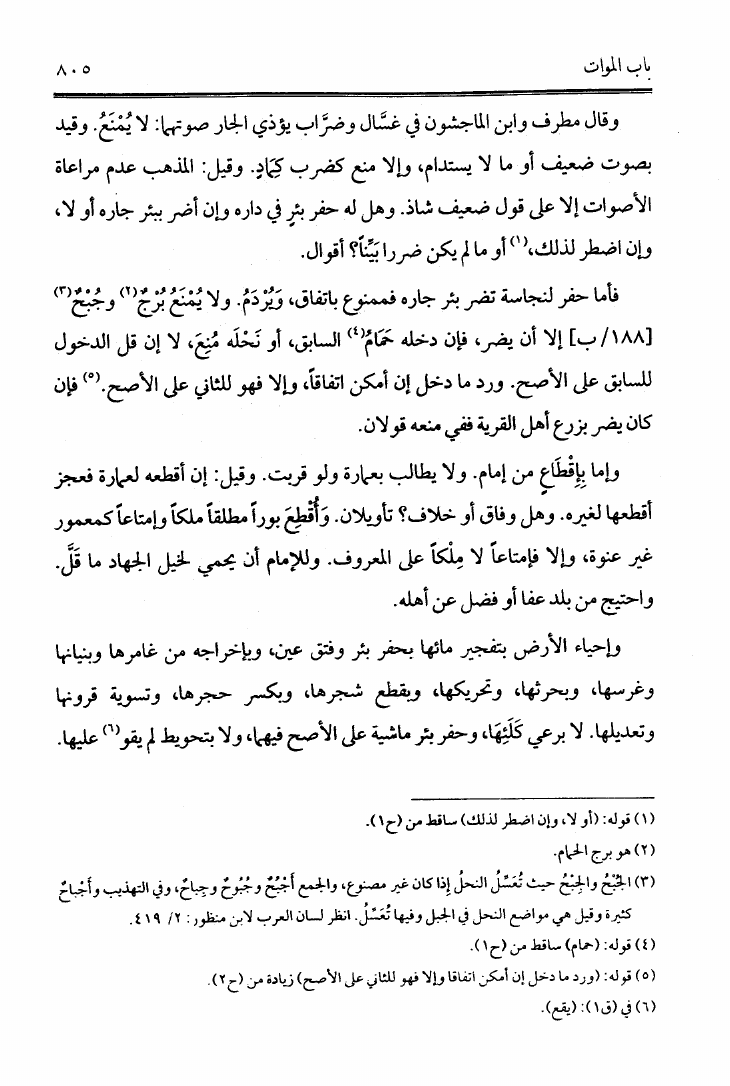 باب الموات ٨٠٥
وقال مطرف وابن الماجشون في غسَّال وضرَّاب يؤذي الجار صوتهما: لا يُمْنَعُ. وقيد
بصوت ضعيف أو ما لا يستدام، وإلا منع كضرب كِمَادٍ. وقيل: المذهب عدم مراعاة
الأصوات إلا على قول ضعيف شاذ. وهل له حفر بئرٍ في داره وإن أضر ببئر جاره أو لا،
وإن اضطر لذلك،(١) أو ما لم يكن ضررا بَيِّناً؟ أقوال.
فأما حفر لنجاسة تضر بئر جاره فممنوع باتفاق، وَيُرْدَمُ. ولا يُمْنَعُ بُرْجٌ(٢) وجُبْحٌ(٣)
[١٨٨/ب] إلا أن يضر، فإن دخله حَمَامُ(٤) السابق، أو نَحْلُه مُنِعَ، لا إن قل الدخول
للسابق على الأصح. ورد ما دخل إن أمكن اتفاقاً، وإلا فهو للثاني على الأصح.(٥) فإن
كان يضر بزرع أهل القرية ففي منعه قولان.
وإما بِإِقْطَاعٍ من إمام. ولا يطالب بعمارة ولو قربت. وقيل: إن أقطعه لعمارة فعجز
أقطعها لغيره. وهل وفاق أو خلاف؟ تأويلان. وَأُقْطِعَ بوراً مطلقاً ملكاً وإمتاعاً كمعمور
غير عنوة، وإلا فإمتاعاً لا مِلْكاً على المعروف. وللإمام أن يحمي لخيل الجهاد ما قَلَّ.
واحتيج من بلد عفا أو فضل عن أهله.
وإحياء الأرض بتفجير مائها بحفر بئر وفتق عين، وبإخراجه من غامرها وبنيانها
وغرسها، وبحرثها، وتحريكها، وبقطع شجرها، وبكسر حجرها، وتسوية قرونها
وتعديلها. لا برعي كَلَئِهَا، وحفر بئر ماشية على الأصح فيهما، ولا بتحويط لم يقو(٦) عليها.
(١) قوله: (أو لا، وإن اضطر لذلك) ساقط من (ح١).
(٢) هو برج الحمام.
(٣) الجُبْحُ والجِبْحُ حيث تُعَسِّلُ النحلُ إذا كان غير مصنوع، والجمع أَجْبُحٌ وجُبُوحٌ وجِباحٌ، وفي التهذيب وأَجْباحٌ
كثيرة وقيل هي مواضع النحل في الجبل وفيها تُعَسِّلُ. انظر لسان العرب لابن منظور: ٢/ ٤١٩.
(٤) قوله: (حمام) ساقط من (ح١).
(٥) قوله: (ورد ما دخل إن أمكن اتفاقا وإلا فهو للثاني على الأصح) زيادة من (ح٢).
(٦) في (ق١): (يقع).